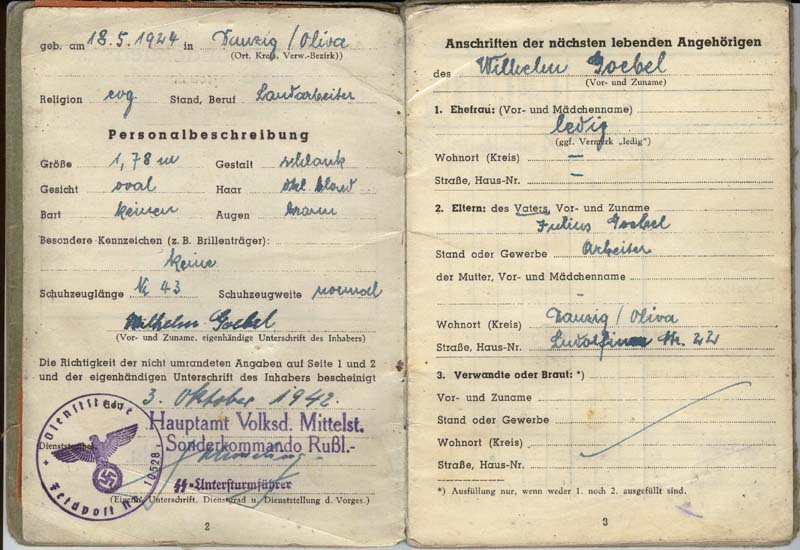 geb. am 18.5.1924 in Danzig/Oliva
(Ort, Kreis, Verw.-Bezirk))
Religion evg Stand, Beruf Landarbeiter
Personalbeschreibung
Größe 1,78 m Gestalt schlank
Gesicht oval Haar dkl. blond
Bart keinen Augen braun
Besondere Kennzeichen (z. B. Brillenträger):
keine
Schuhzeuglänge № 43 Schuhzeugweite normal
Wilhelm Goebel
(Vor- und Zuname, eigenhändige Unterschrift des Inhabers)
Die Richtigkeit der nicht umrandeten Angaben auf Seite 1 und 2
und der eigenhändigen Unterschrift des Inhabers bescheinigt
3. Oktober 1942.
Dienststelle
Feldpost Nr. 10528
Hauptamt Volksd. Mittelst.
Sonderkommando Rußl.-
Dienststempel
SS-Untersturmführer
(Eigenh. Unterschrift, Dienstgrad u. Dienststellung d. Vorges.)
2
Anschriften der nächsten lebenden Angehörigen
des Wilhelm Goebel
(Vor- und Zuname)
1. Ehefrau: (Vor- und Mädchenname)
ledig
(ggf. Vermerk „ledig")
Wohnort (Kreis) –
Straße, Haus-Nr. –
2. Eltern: des Vaters, Vor- und Zuname
Julius Goebel
Stand oder Gewerbe Arbeiter
der Mutter, Vor- und Mädchenname
–
Wohnort (Kreis) Danzig/Oliva
Straße, Haus-Nr. Nr. 22
3. Verwandte oder Braut: *)
Vor- und Zuname
Stand oder Gewerbe
Wohnort (Kreis)
Straße, Haus-Nr.
*) Ausfüllung nur, wenn weder 1. noch 2. ausgefüllt sind.
3